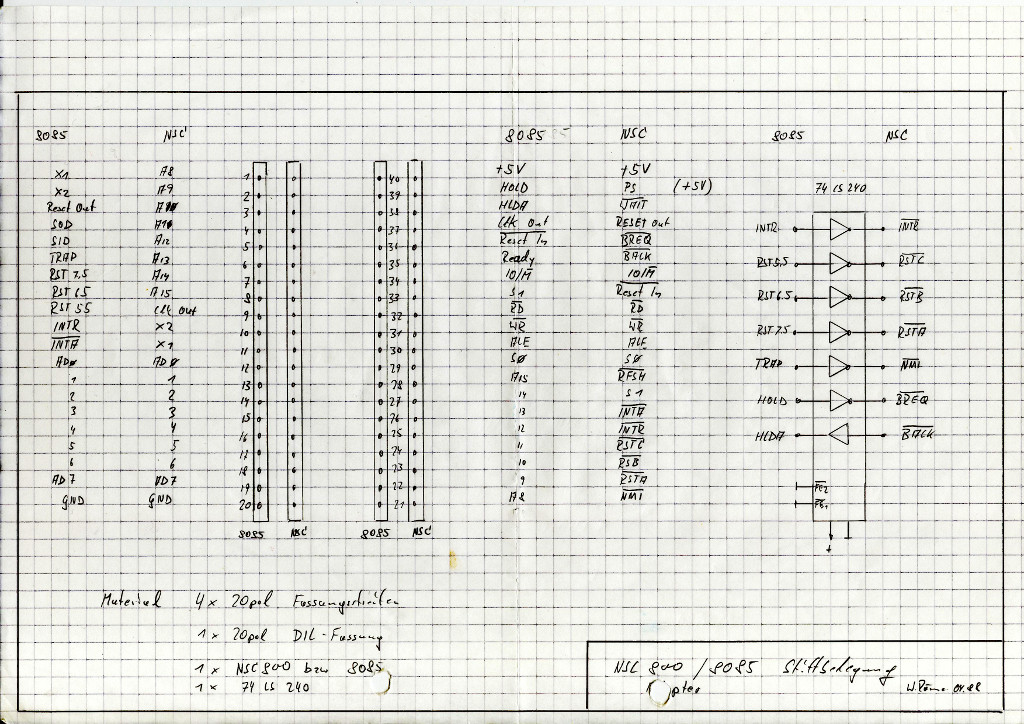 8085 NSC 8085 NSC 8085 NSC
X1 A8 1 40 +5V +5V
X2 A9 2 39 HOLD PS (+5V)
Reset Out A10 3 38 HLDA WAIT
SOD A11 4 37 Clk out RESET out
SID A12 5 36 Reset In BREQ
TRAP A13 6 35 Ready BACK
RST 7.5 A14 7 34 IO/M IO/M
RST 6.5 A15 8 33 S1 Reset In
RST 5.5 Clk out 9 32 RD RD
INTR X2 10 31 WR WR
INTA X1 11 30 ALE ALE
AD0 AD0 12 29 SØ SØ
1 1 13 28 A15 RFSH
2 2 14 27 14 S1
3 3 15 26 13 INTA
4 4 16 25 12 INTR
5 5 17 24 11 RSTC
6 6 18 23 10 RSB
AD7 AD7 19 22 9 RSTA
GND GND 20 21 A8 NMI
8085 NSC 8085 NSC
74 LS 240
INTR INTR
RST 5.5 RSTC
RST 6.5 RSTB
RST 7.5 RSTA
TRAP NMI
HOLD BREQ
HLDA BACK
+
Material 4x 20pol Fassungsstreifen
1x 20pol DIL-Fassung
1x NSC 800 bzw 8085
1x 74 LS 240
NSC 800 / 8085 Stiftbelegung
pter